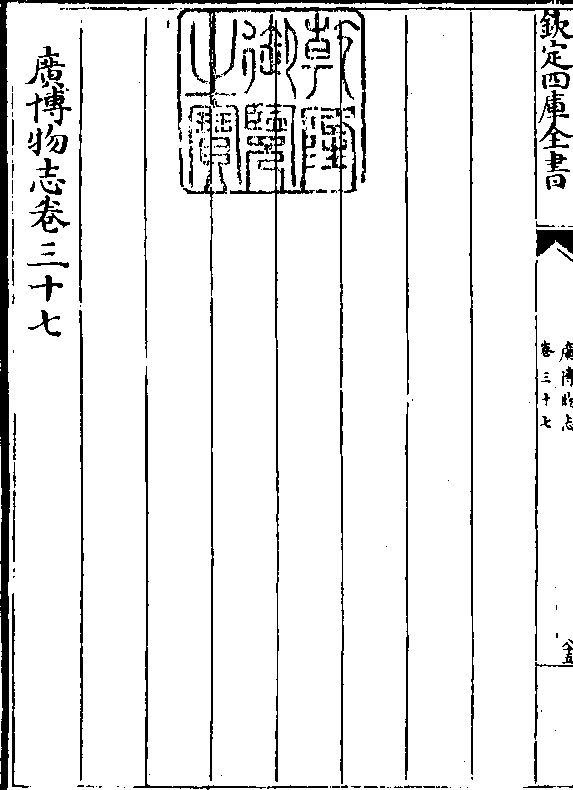 欽定四庫全書
廣博物志
卷三十七
八五
乾隆御覽之寶
廣博物志卷三十七